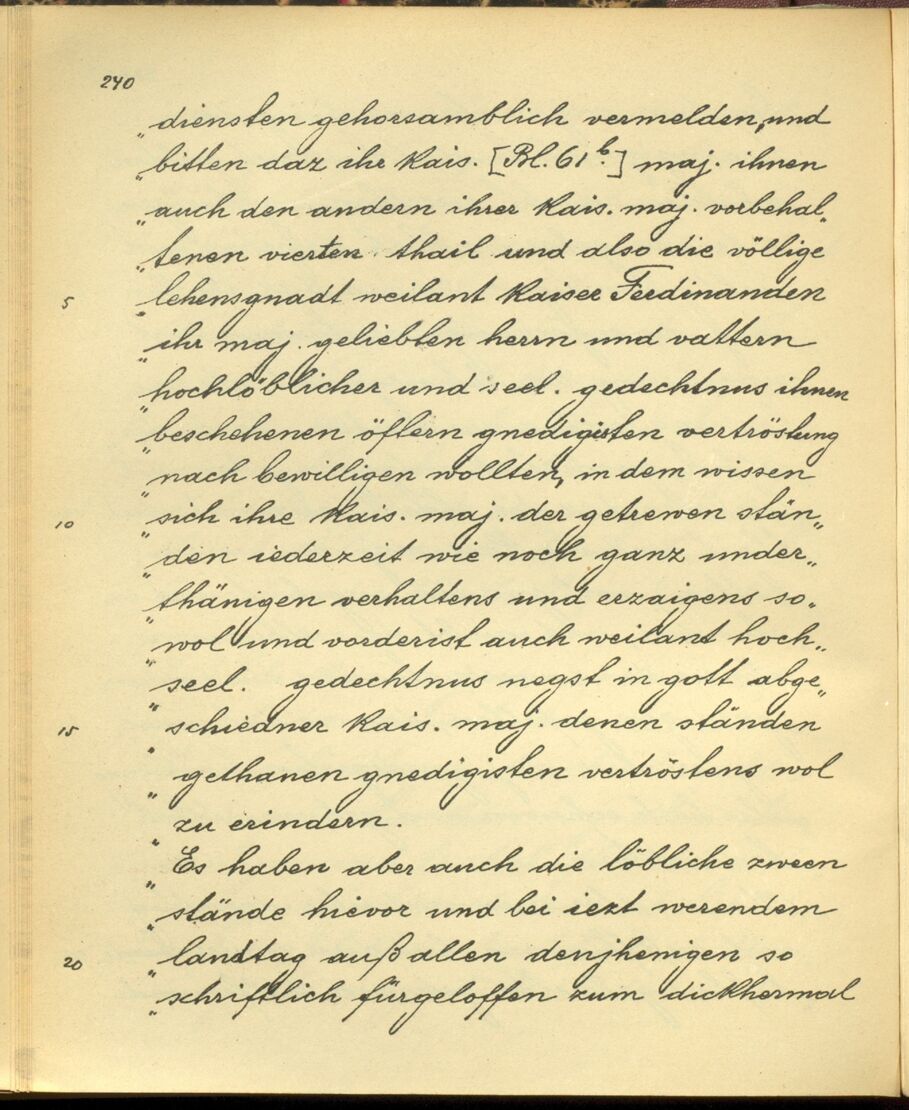 240
„diensten gehorsamblich vermelden, und
„bitten daz ihr Kais. [Bl. 61 b.] maj. ihnen
„auch den andern ihrer Kais. maj. vorbehal„
„tenen vierten thail und also die völlige
5 „lehensgnadt weilant Kaiser Ferdinanden
„ihr maj. geliebten herrn und vattern
„hochlöblicher und seel. gedechtnus ihnen
„beschehenen öftern gnedigisten vertröstung
„nach bewilligen wollten, in dem wissen
10 „sich ihre Kais. maj. der getrewen stän„
„den iederzeit wie noch ganz under„
„thänigen verhaltens und erzaigens so„
„wol und vorderist auch weilant hoch„
„seel. gedechtnus negst in gott abge„
15 „schiedner Kais. maj. denen ständen
„gethanen gnedigisten vertröstens wol
„zu erindern.
„Es haben aber auch die löbliche zween
„stände hievor und bei iezt werendem
20 „landtag auß allen denjhenigen so
„schriftlich fürgeloffen zum dickhermal